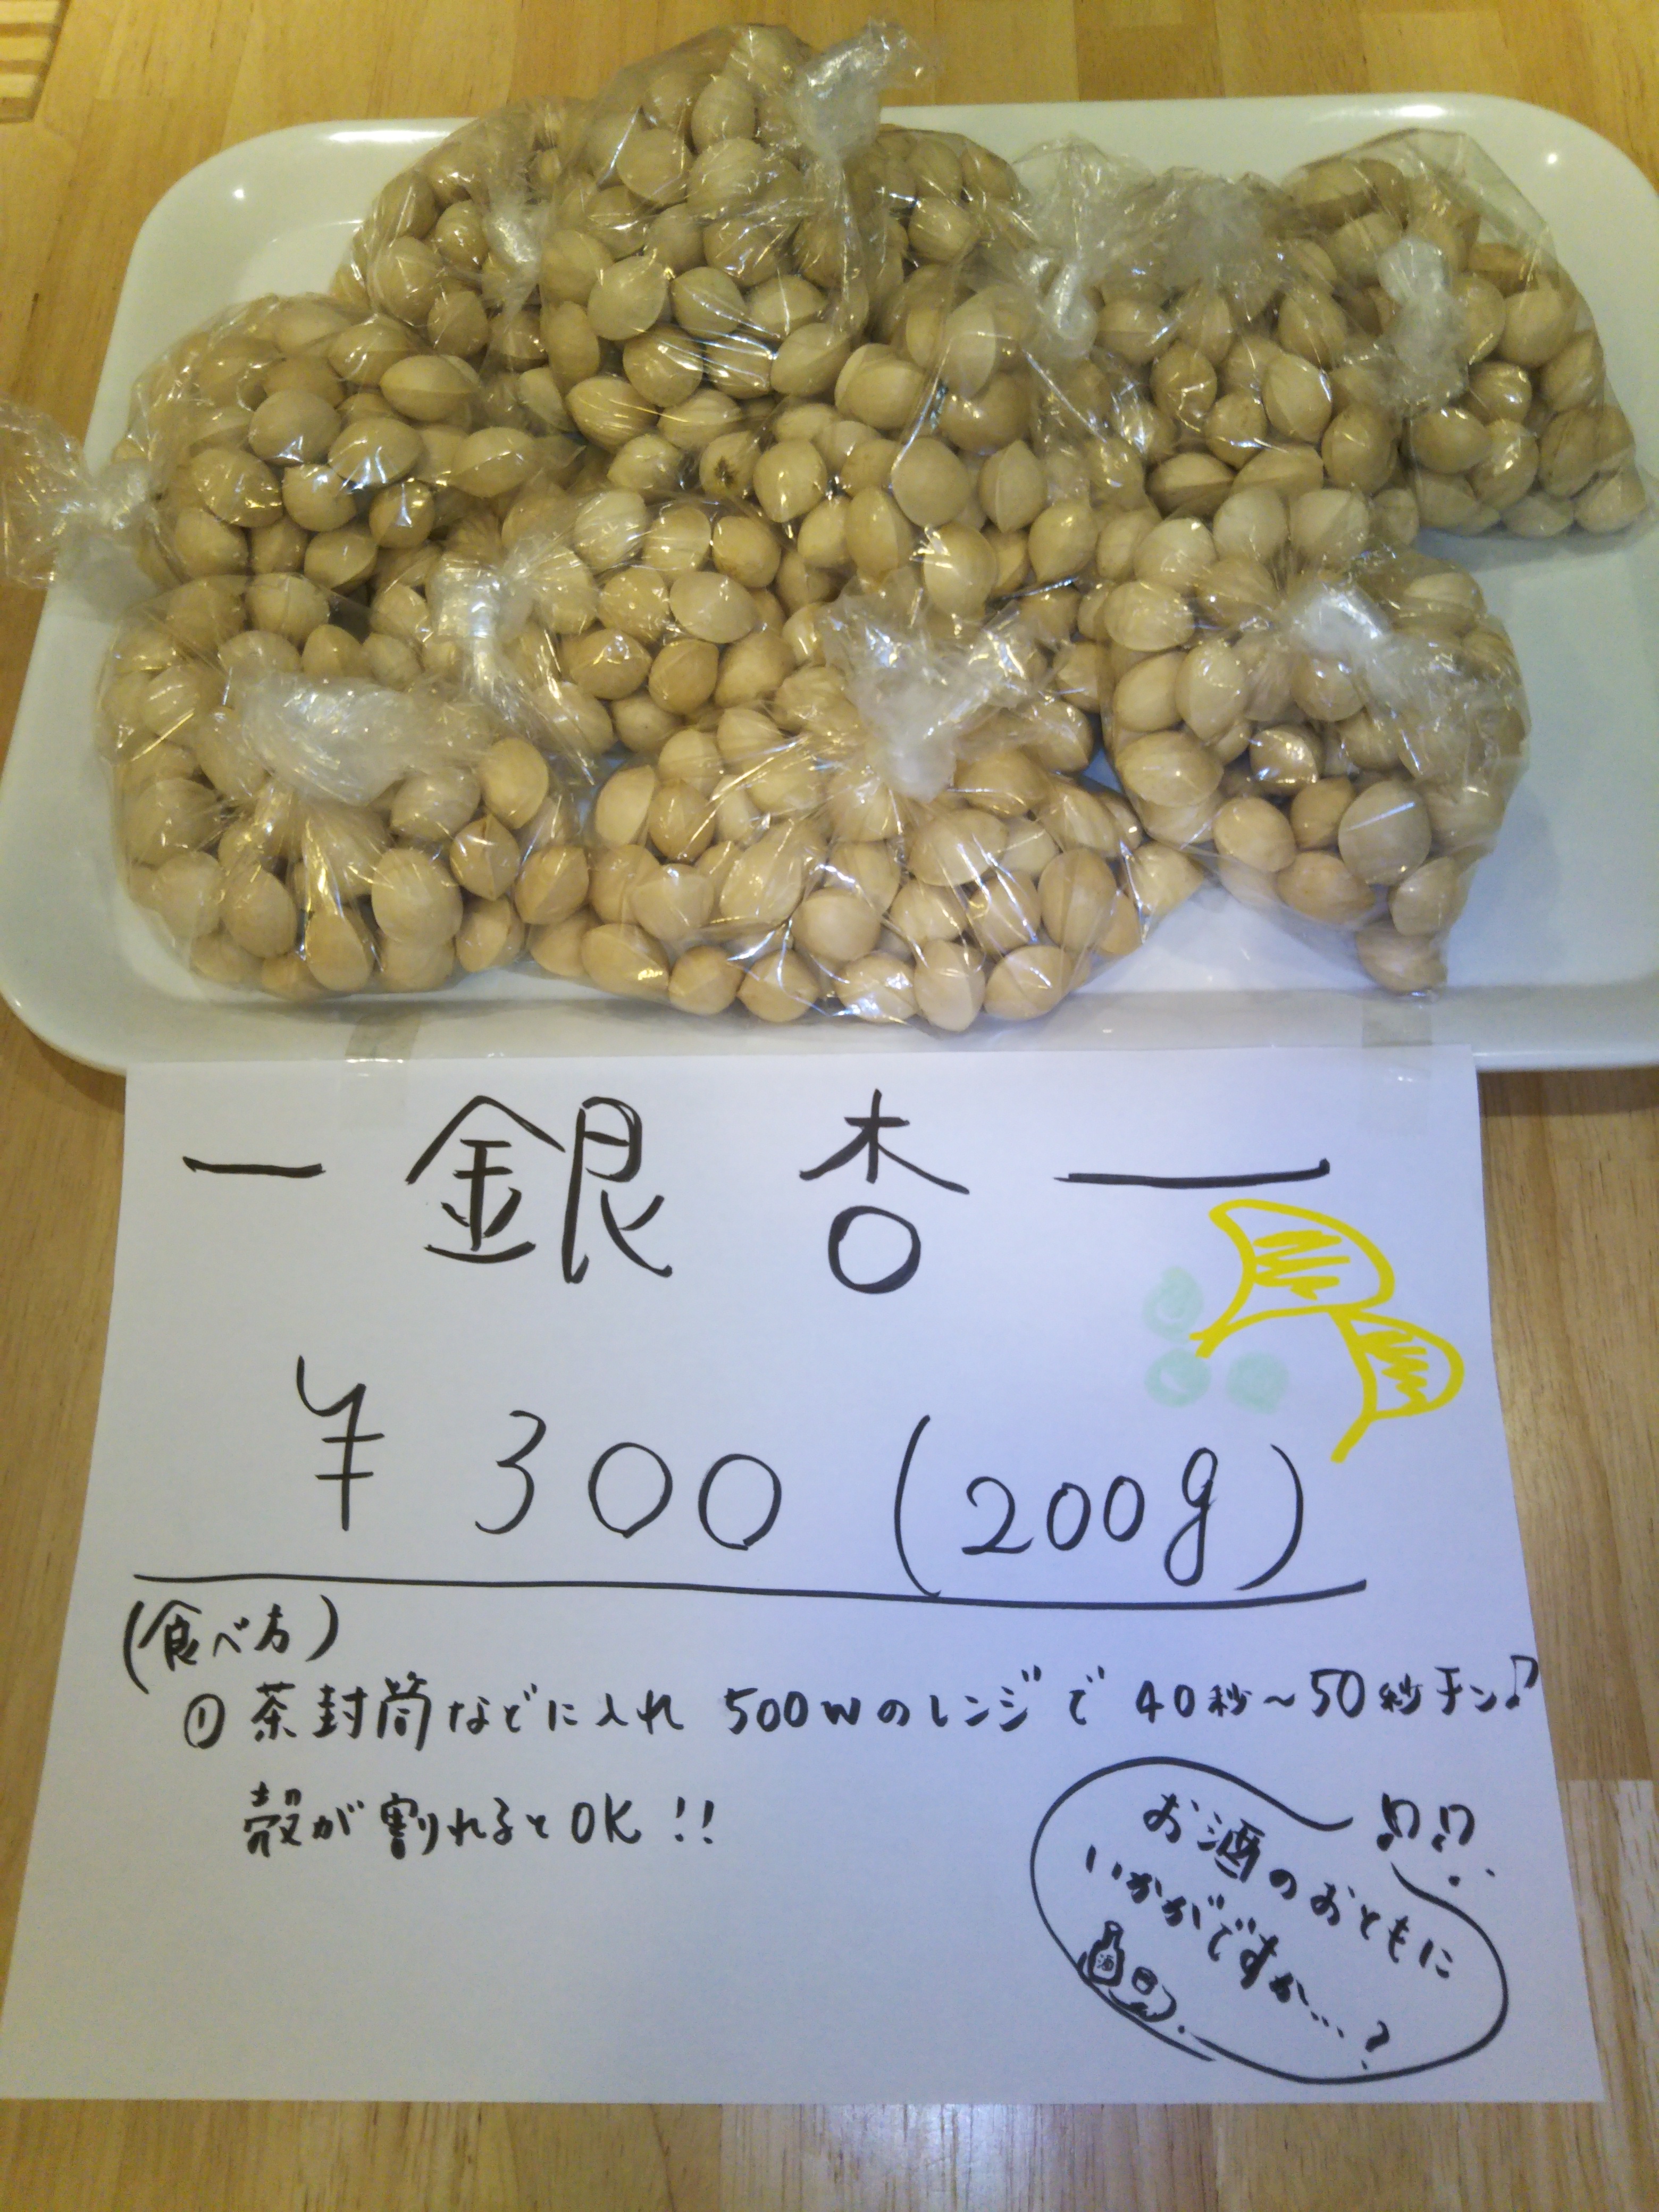 — 銀杏 —
¥300 (200g)
(食べ方)
① 茶封筒などに入れ 500Wのレンジで 40秒~50秒チン♪
殻が割れるとOK!!
お酒のおともに
いかがですか…?
酒